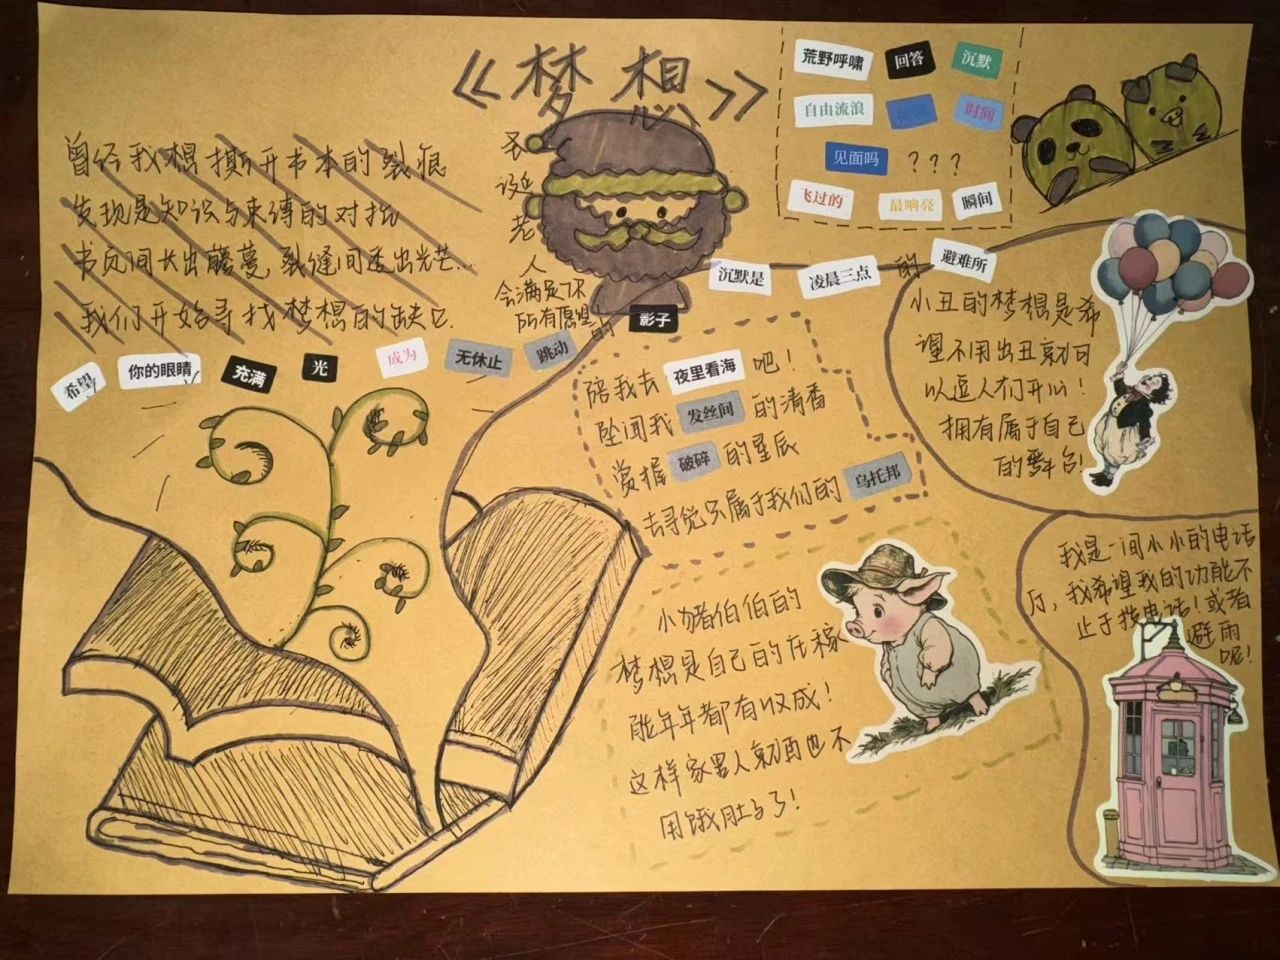 《梦想》
曾经我想撕开书本的裂痕
发现是知识与束缚的对抗
书页间长出藤蔓,裂缝间透出光芒…
我们开始寻找梦想的缺口.
希望 你的眼睛 充满 光 成为 无休止 跳动 的 影子
圣诞老人
会满足你
所有愿望
荒野呼啸 回答 沉默
自由流浪 时间
见面吗 ???
飞过的 最响亮 瞬间
沉默是 凌晨三点 的 避难所
陪我去 夜里看海 吧!
坠闻我 发丝间 的清香
赏握 破碎 的星辰
去寻觅只属于我们的 乌托邦
小丑的梦想是希
望不用出丑就可
以逗人们开心!
拥有属于自己
的舞台!
小猪伯伯的
梦想是自己的庄稼
能年年都有收成!
这样家里人就再也不
用饿肚子了!
我是一间小小的电话
厅,我希望我的功能不
止于打电话!或者
避雨
呢!